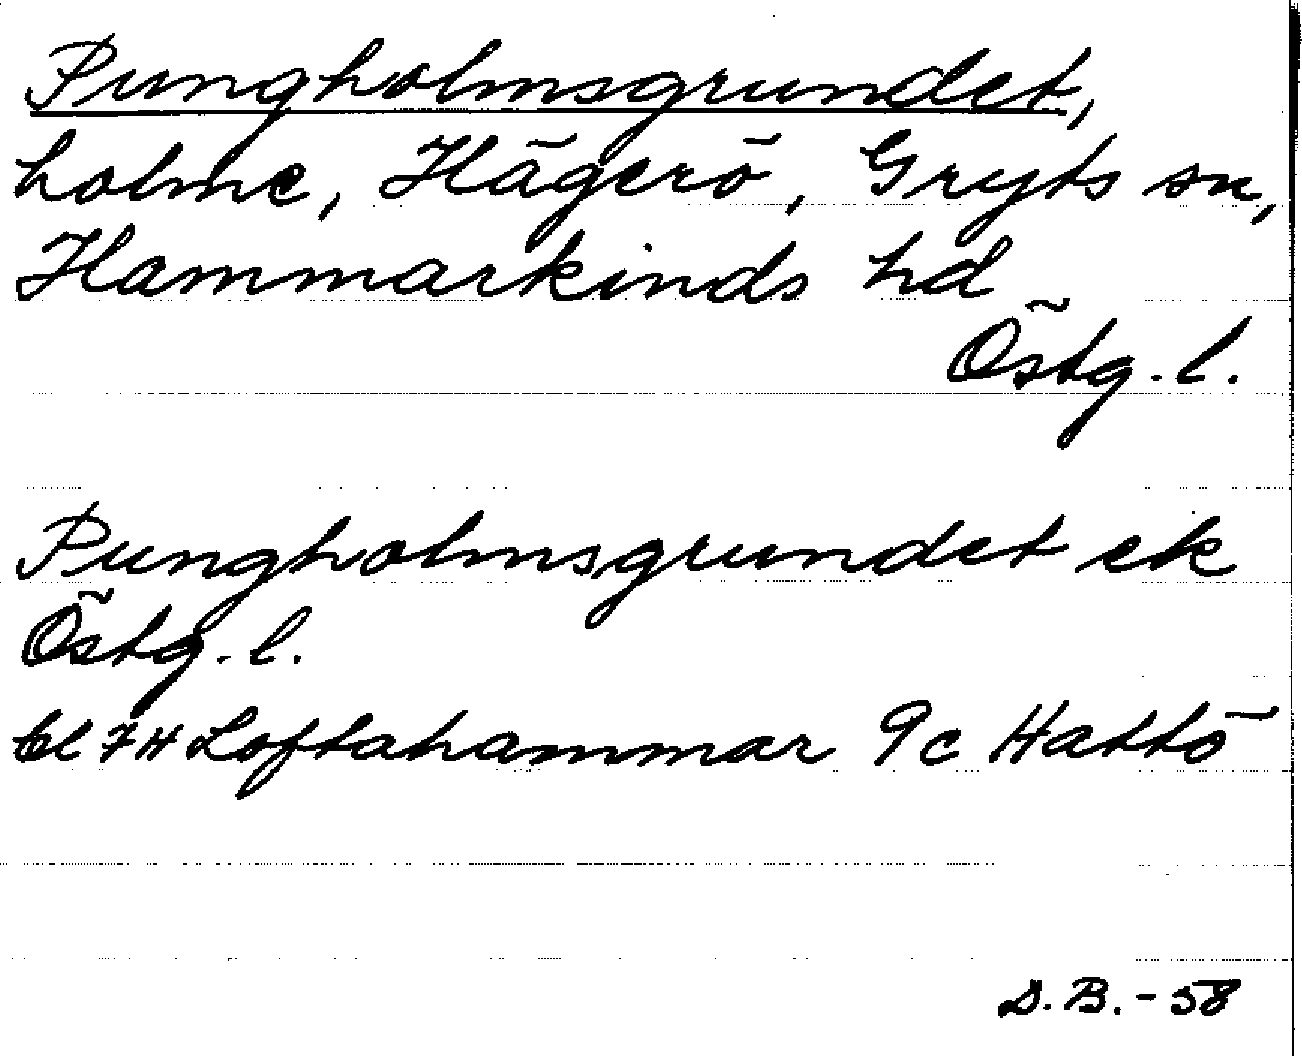 Pungholmsgrundet,
holme, Hägerö, Gryts sn,
Hammarkinds hd
Östg. l.
Pungholmsgrundet ek
Östg. l.
bl 7H Loftahammar 9c Hattö
D. B. - 58